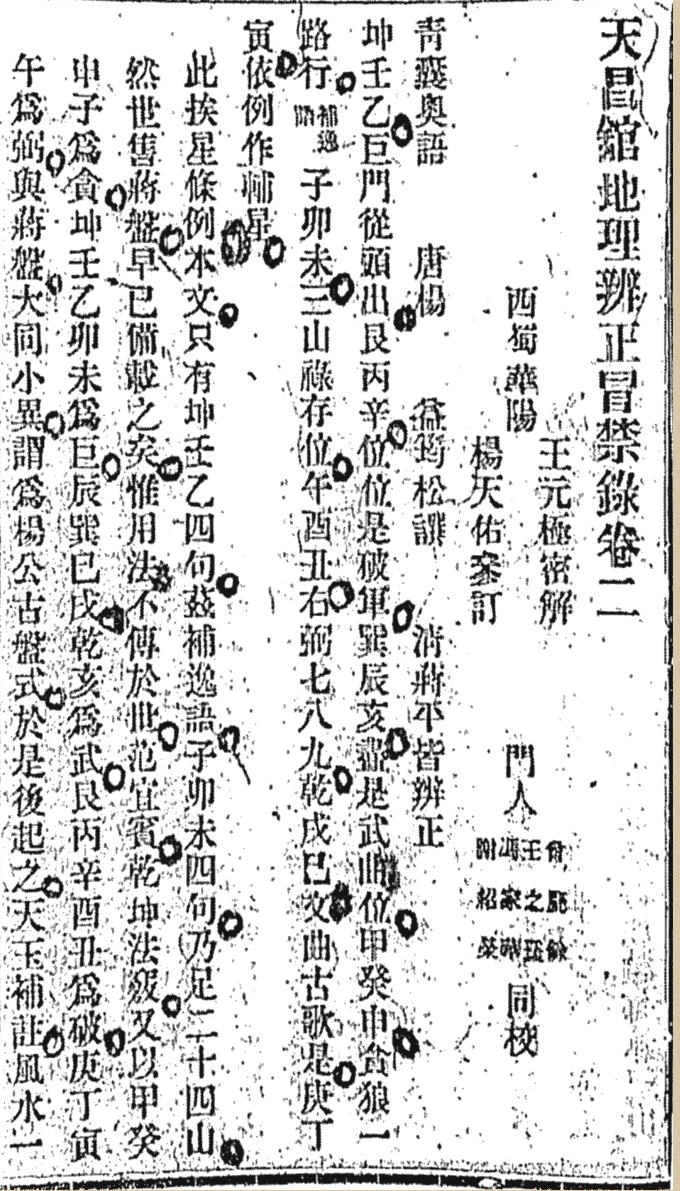 天昌館地理辨正冒禁錄卷二
王元極密解
西蜀華陽
楊天佑參訂
門人
同校
青囊奧語 唐楊 益筠松譔 清蔣平皆辨正
坤壬乙巨門從頭出艮丙辛位位是破軍巽辰亥盡是武曲位甲癸申貪狼一
路行 補逸 子卯未三山祿存位午酉丑右弼七八九乾戌巳文曲古歌是庚丁
寅依例作輔星
此挨星條例本文只有坤壬乙四句茲補逸語子卯未四句乃足二十四山
然世售蔣盤早已備載之矣惟用法不傳於世范宜賓乾坤法竅又以甲癸
申子為貪坤壬乙卯未為巨辰巽巳戌乾亥為武艮丙辛酉丑為破庚丁寅
午為弼與蔣盤大同小異謂為楊公古盤式於是後起之天玉補註風水一